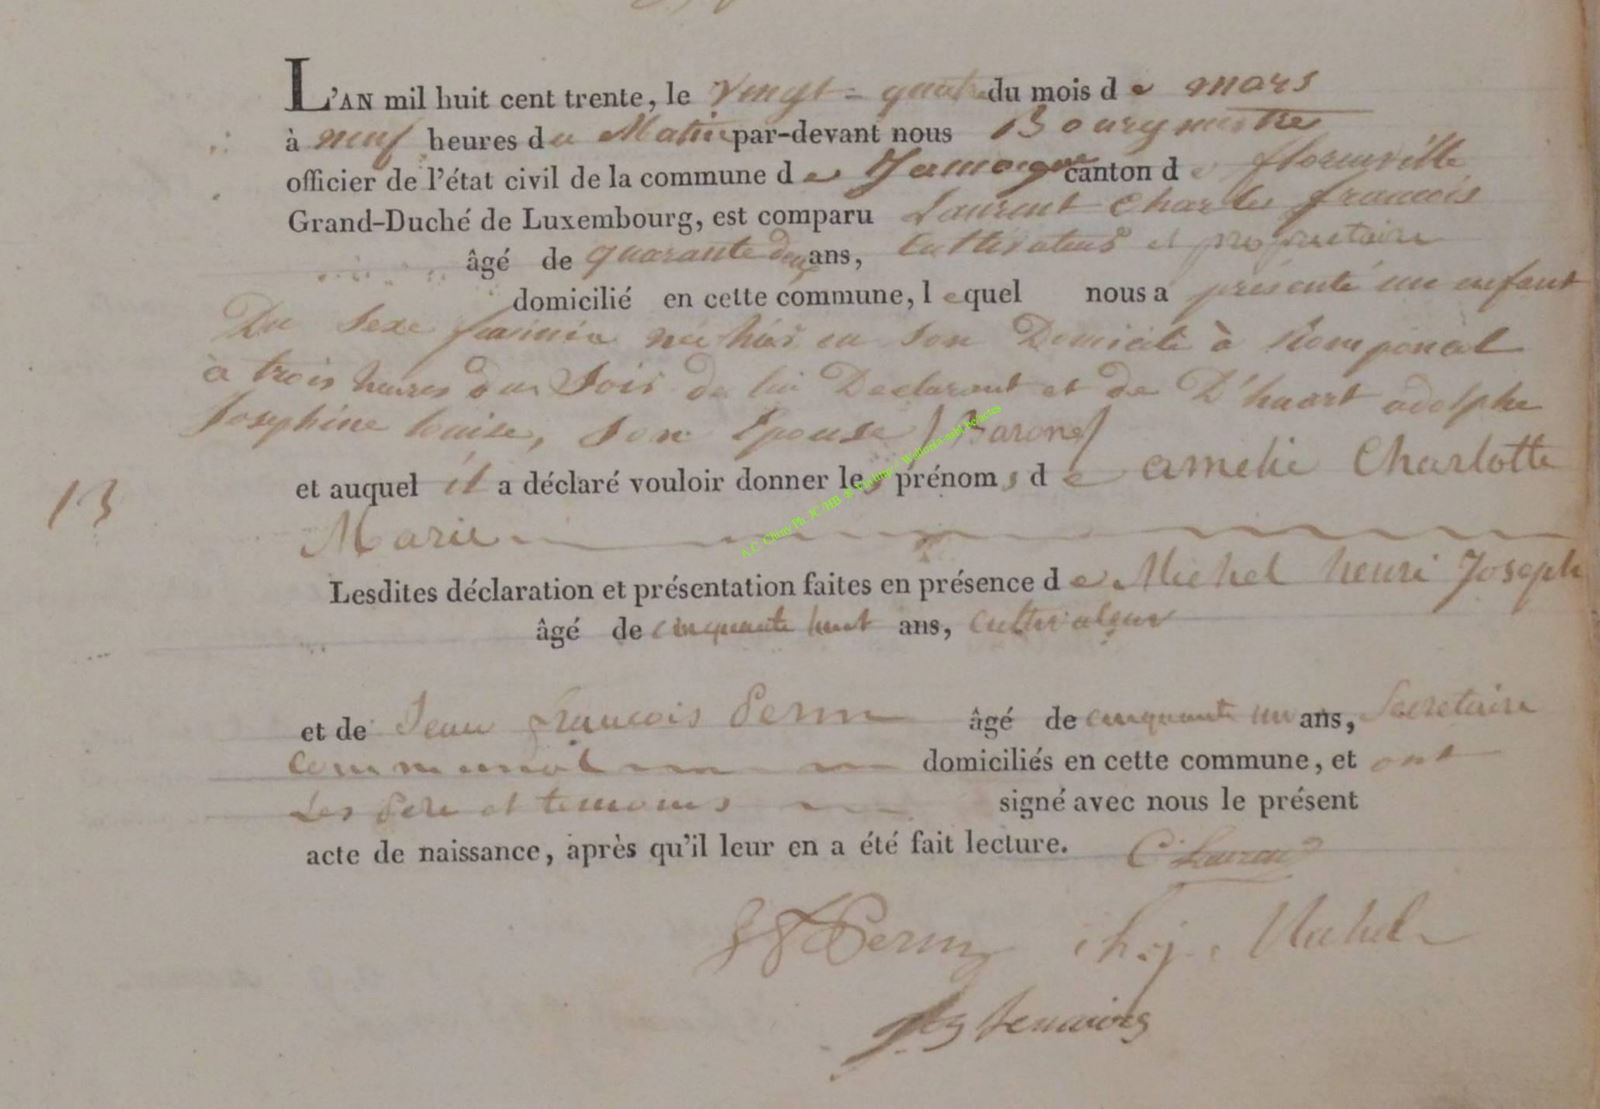 L'AN mil huit cent trente, le vingt-quatre du mois de mars
à neuf heures du Matin par-devant nous Bourgmestre
officier de l'état civil de la commune de Jamoigne canton de florenville
Grand-Duché de Luxembourg, est comparu Laurent Charles francois
âgé de quarante deux ans, Cultivateur et proprietaire
domicilié en cette commune, lequel nous a présenté un enfant
Du Sexe né hier en Son Domicile à Romponcel
à trois heures du Soir de lui Declarant et de D'huart adolphe
Josephine louise, Son Epouse /Barone/
et auquel il a déclaré vouloir donner les prénoms de amelie Charlotte
13
Marie
Lesdites déclaration et présentation faites en présence de Michel henri Joseph
âgé de cinquante huit ans, cultivateur
et de Jean francois Perin âgé de cinquante un ans, Secretaire
Communal domiciliés en cette commune, et ont
Les Pere et temoins signé avec nous le présent
acte de naissance, après qu'il leur en a été fait lecture. C Laurent
JF Perin h. j. Michel